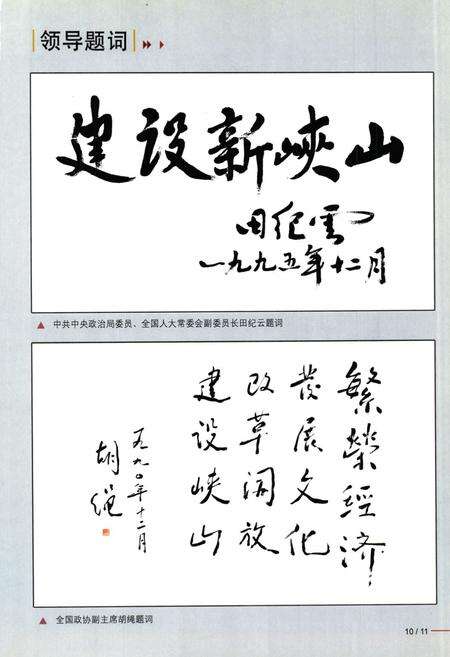 领导题词
建设新峡山
田纪云
一九九五年十二月
中共中央政治局委员、全国人大常委会副委员长田纪云题词
繁荣经济
发展文化
改革开放
建设峡山
一九九〇年十二月
胡绳
全国政协副主席胡绳题词
10 / 11